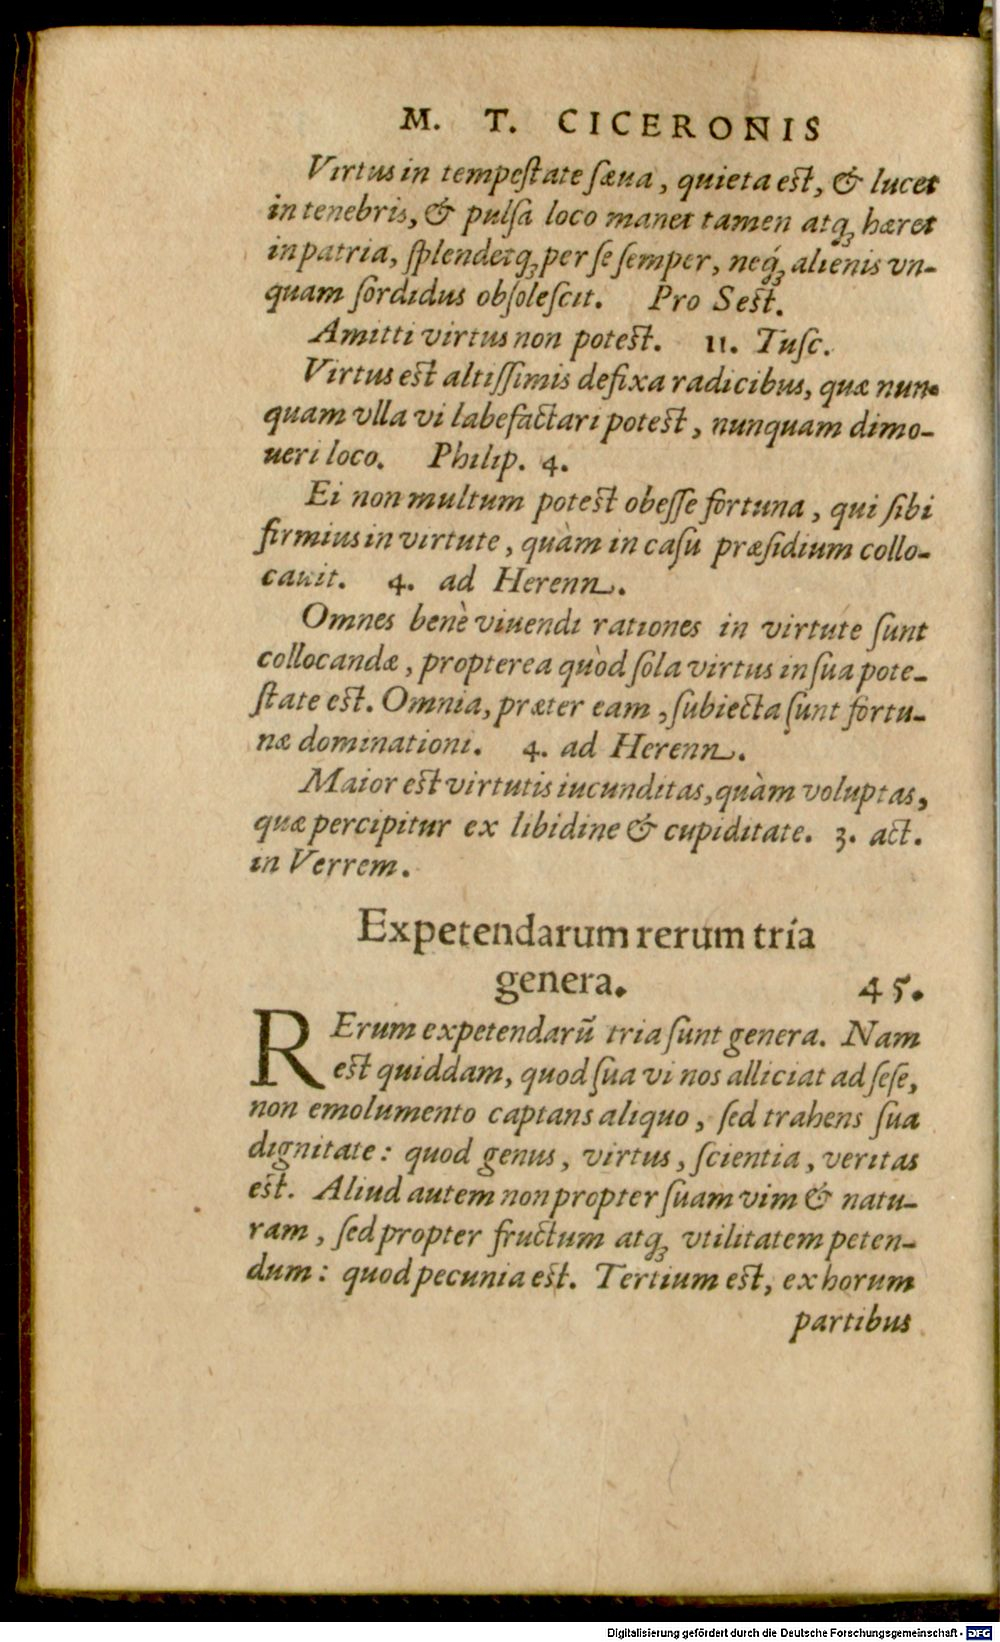 M. T. CICERONIS
Virtus in tempeſtate ſæua, quieta est, & lucet
in tenebris, & pulſa loco manet tamen atq; hæret
in patria, ſplendetq; per ſe ſemper, neq́; alienis vn-
quam ſordidus obſoleſcit. Pro Sest.
Amitti virtus non potest. 11. Tuſc.
Virtus est altiſſimis defixa radicibus, quæ nun-
quam vlla vi labefactari potest, nunquam dimo-
ueri loco. Philip. 4.
Ei non multum potest obeſſe fortuna, qui ſibi
firmius in virtute, quàm in caſu præſidium collo-
cauit. 4. ad Herenn.
Omnes benè viuendi rationes in virtute ſunt
collocandæ, propterea quòd ſola virtus in ſua pote-
ſtate est. Omnia, præter eam, ſubiecta ſunt fortu-
næ dominationi. 4. ad Herenn.
Maior est virtutis iucunditas, quàm voluptas,
quæ percipitur ex libidine & cupiditate. 3. act.
in Verrem.
Expetendarum rerum tria
genera. 45.
RErum expetendarũ tria ſunt genera. Nam
est quiddam, quod ſua vi nos alliciat ad ſeſe,
non emolumento captans aliquo, ſed trahens ſua
dignitate: quod genus, virtus, ſcientia, veritas
est. Aliud autem non propter ſuam vim & natu-
ram, ſed propter fructum atq; vtilitatem peten-
dum: quod pecunia est. Tertium est, ex horum
partibus
Digitalisierung gefördert durch die Deutsche Forschungsgemeinschaft - DFG